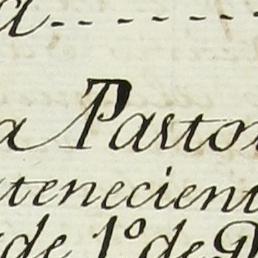 a Pasto
tenecient
de 1º de